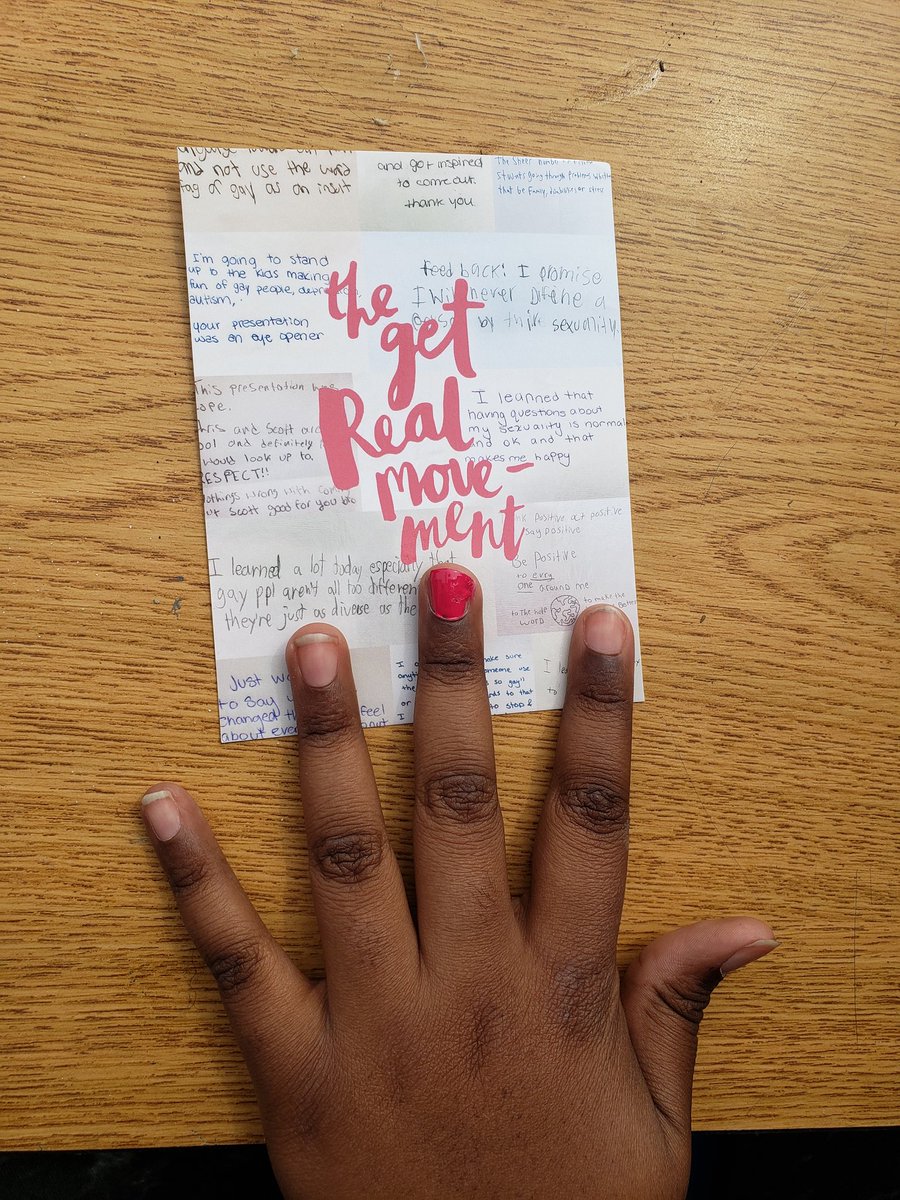 and not use the word
fag or gay as an insult
and got inspired
to come out.
thank you.
The sheer number
students going through problems
that be Family, disabilities, or stress
I'm going to stand
up to the kids making
fun of gay people,
autism,
your presentation
was an eye opener
feedback! I promise
I will never
by their sexuality.
the
get
Real
move-
ment
This presentation was
and Scott
and definitely
would look up to.
RESPECT!!
I learned that
having questions about
my sexuality is normal
and ok and that
makes me happy
nothings wrong with
Scott good for you bro
positive act positive
say positive
be positive
to every
one around me
to the
word
to make the
I learned a lot today especially that
gay ppl aren't all too different
they're just as diverse as the
Just
to say
changed
feel
about
make sure
someone use
so gay"
to that
or
to stop &
I